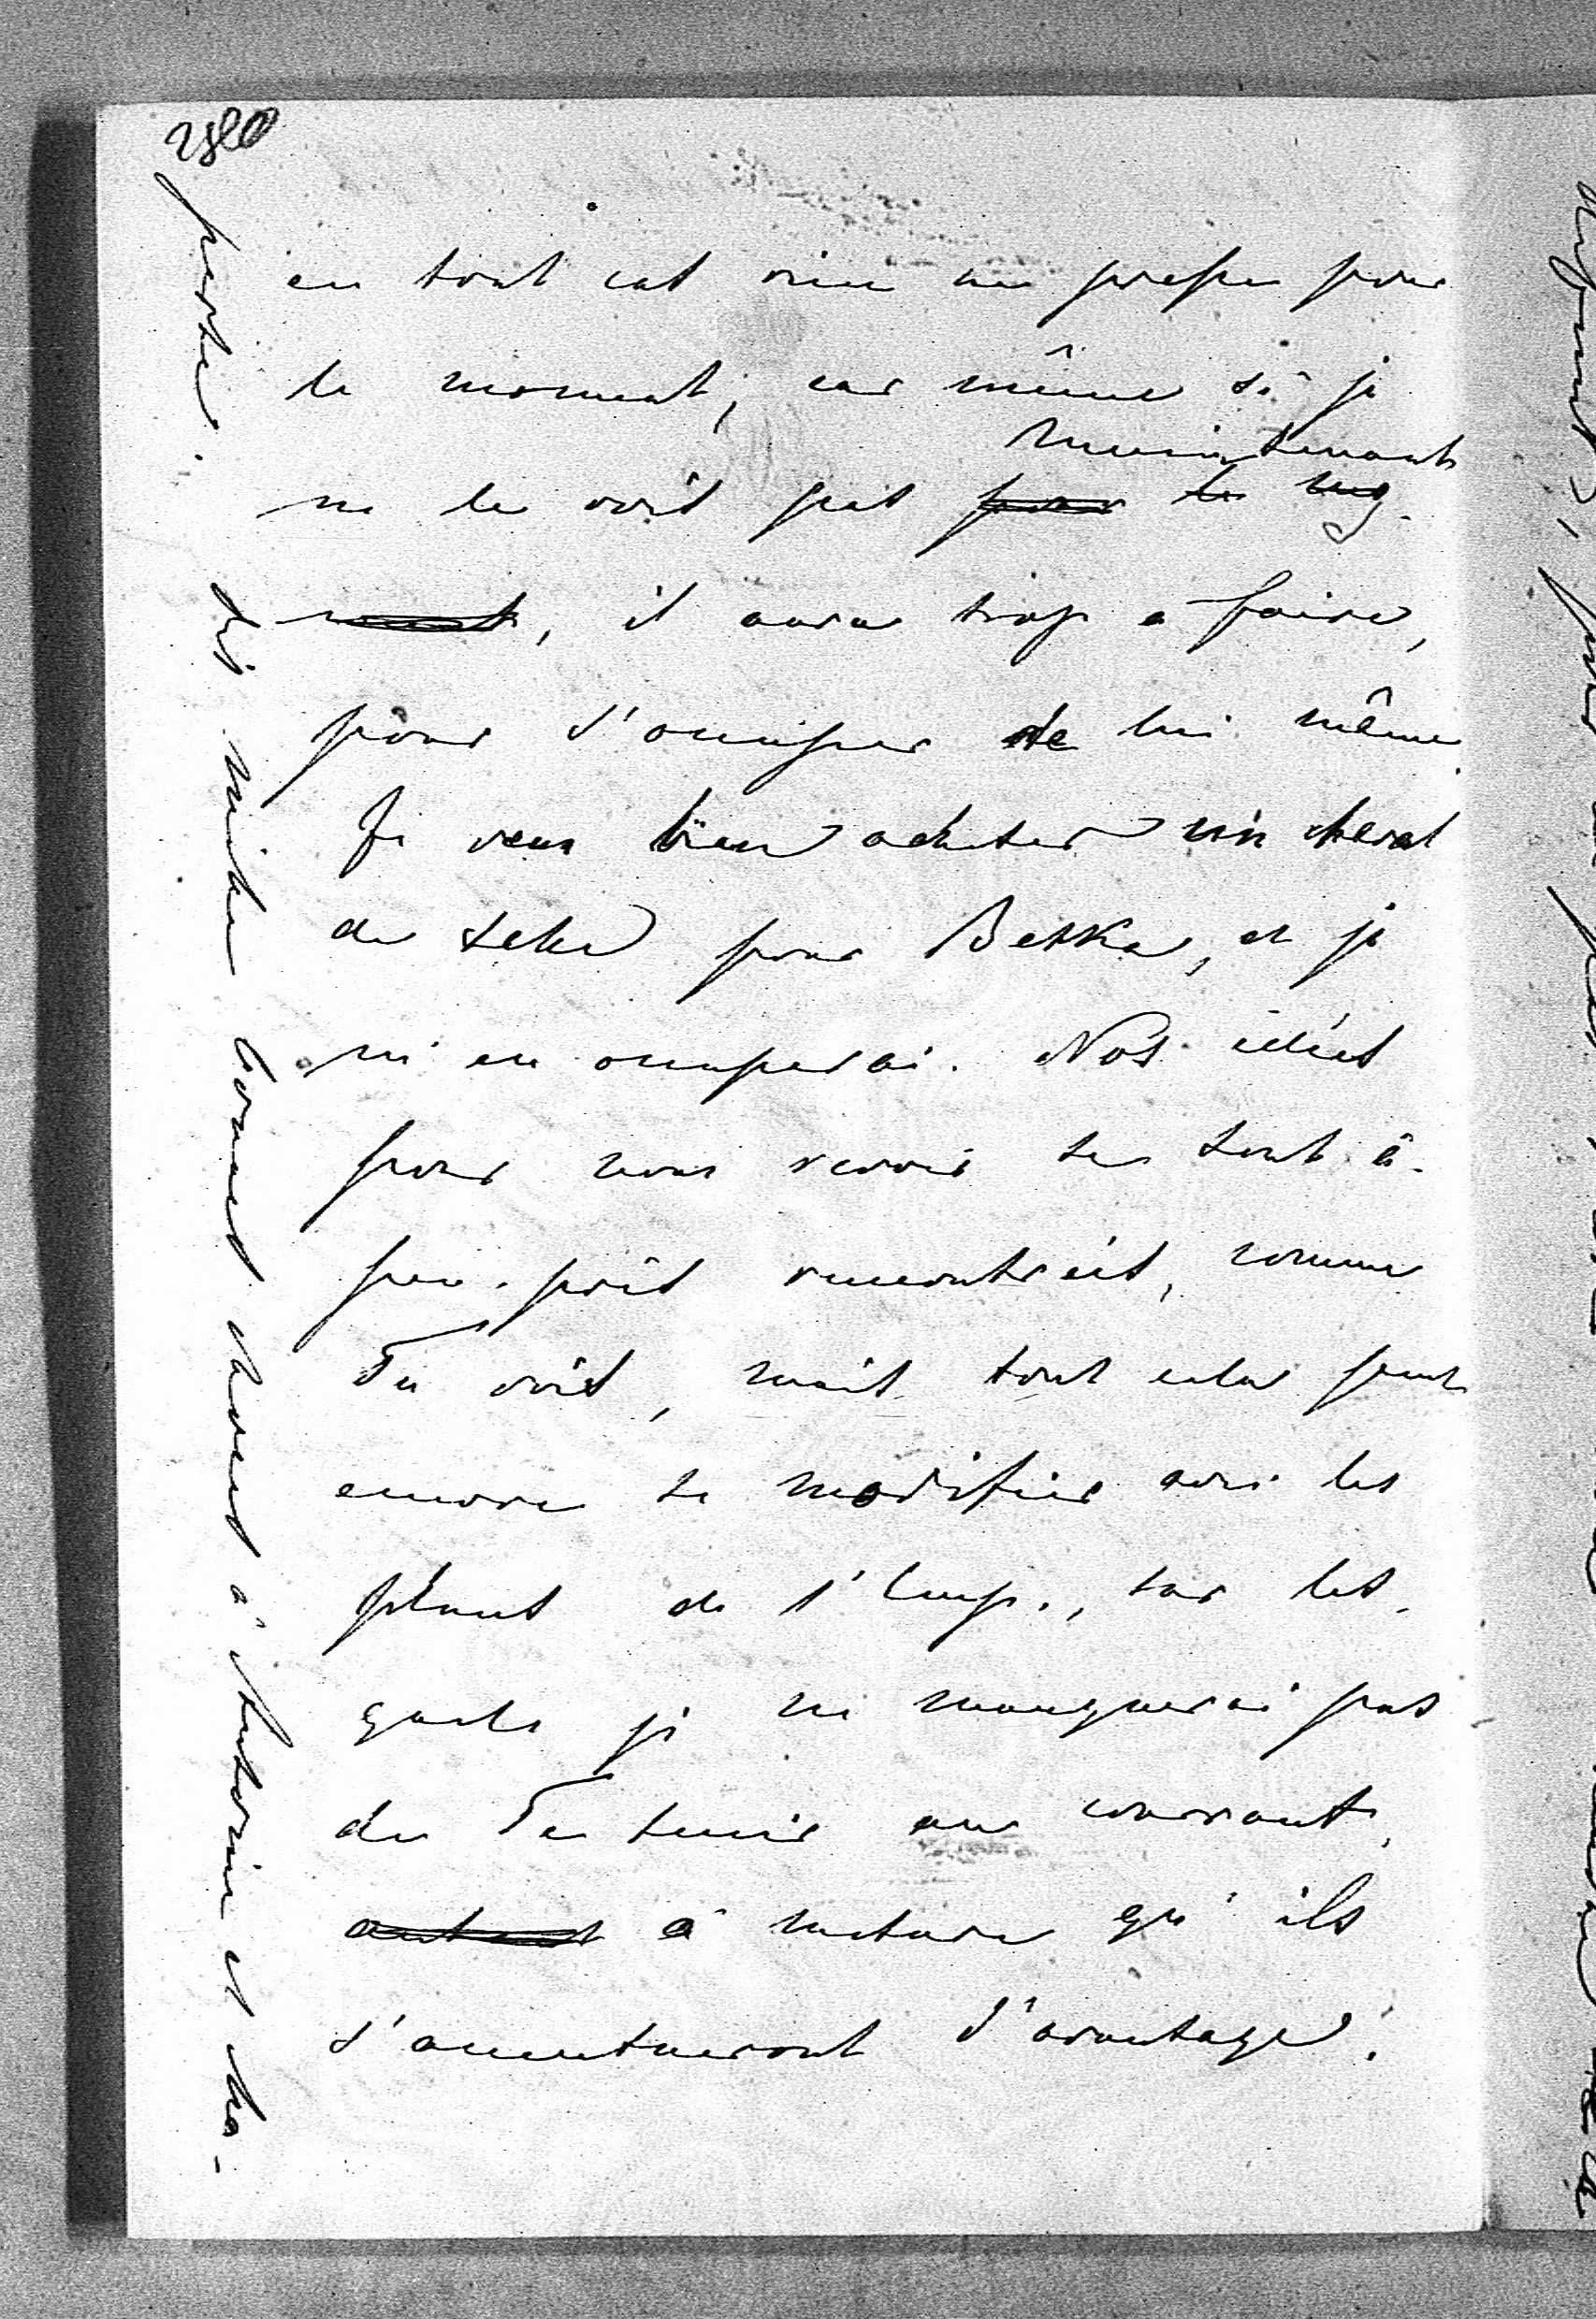 280
en tout cas rien ne presse pour
le moment, car même si je
maintenant
ne le vois pas pour le mo-
ment, il aura trop a faire,
pour s'occuper de lui même.
Je veux bien acheter un cheval
de selle pour Betka, et je
m'en occuperai. Nos idées
pour nous revoir se sont à-
peu-près rencontrées, comme
Tu vois, mais tout cela peut
encore se modifier avec les
plans de l'Emp., sur les-
quels je ne manquerai pas
de Te tenir au courrant,
autant à mesure qu'ils
s'accentueront d'avantage.
dis mille bonnes choses à Antoine et
porter.